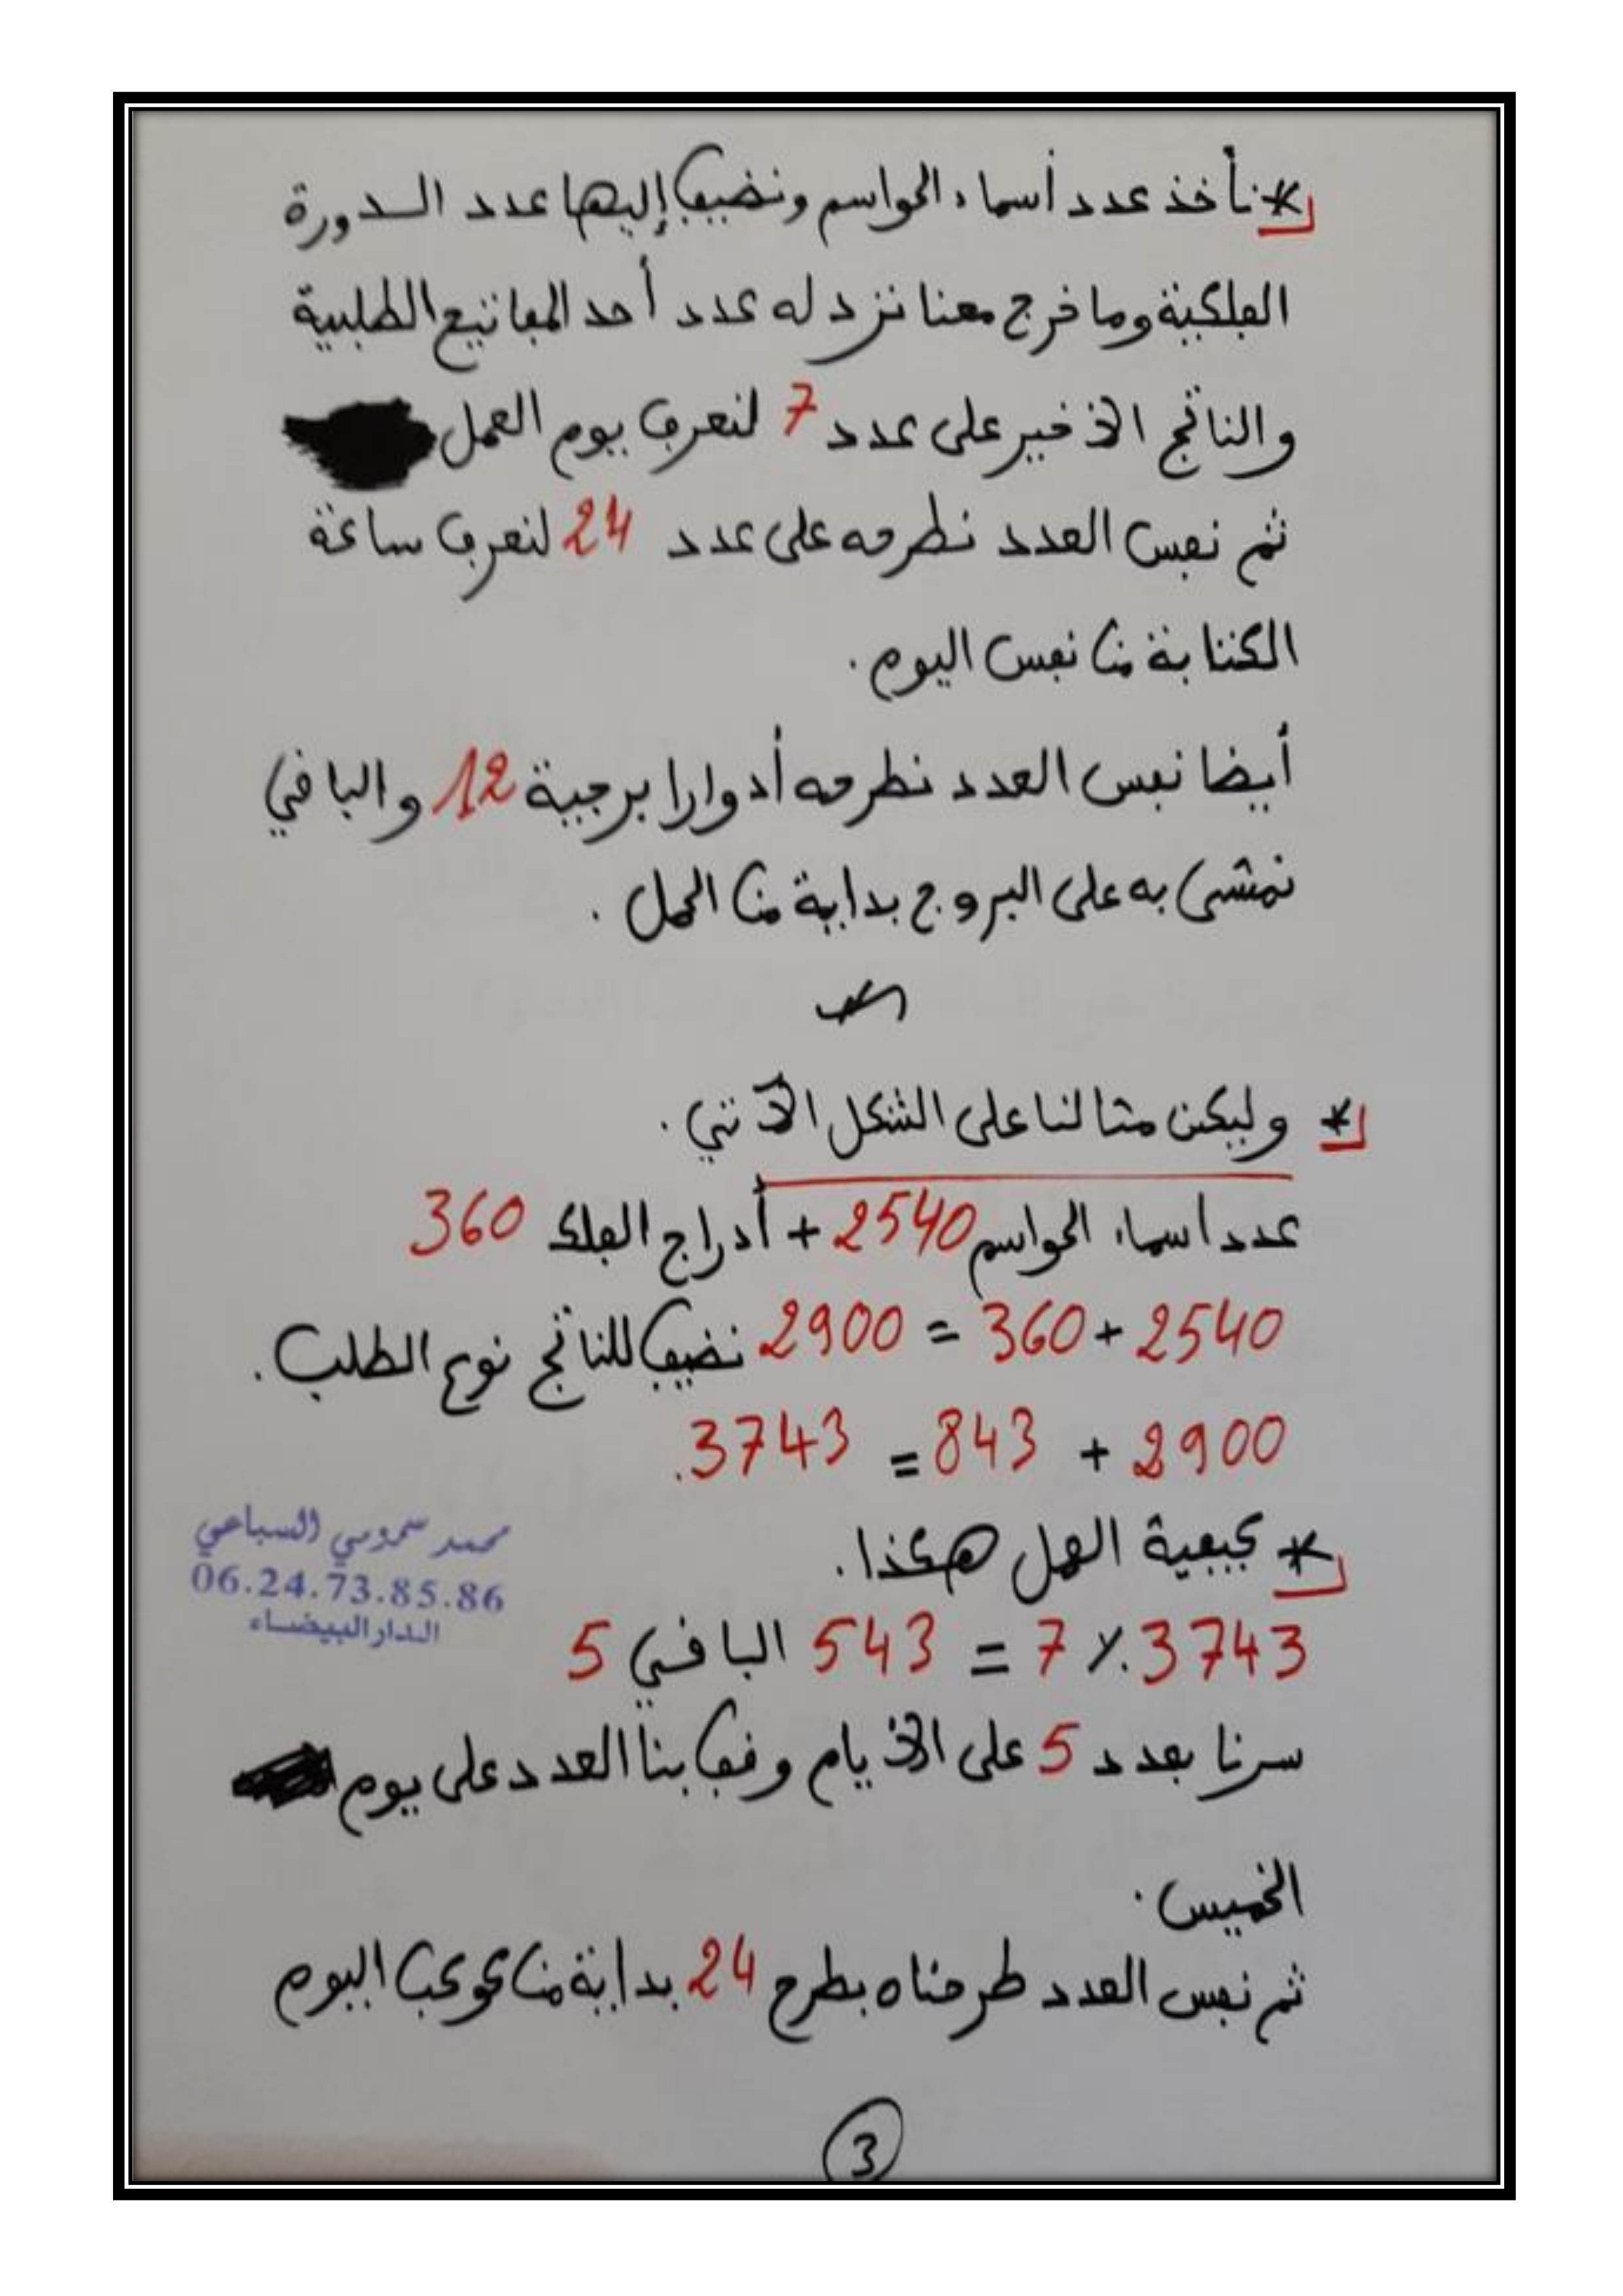 * نأخذ عدد أسماء الحواسم ونضيف إليها عدد الدورة
الفلكية وما خرج معنا نزد له عدد أحد المفاتيح الطلبية
والناتج الأخير على عدد 7 لنعرف يوم العمل
ثم نفس العدد نطرحه على عدد 24 لنعرف ساعة
الكتابة من نفس اليوم.
أيضا نفس العدد نطرحه أدوارا برجية 12 والباقي
نمشي به على البروج بداية من الحمل.
* وليكن مثالنا على الشكل الآتي.
عدد أسماء الحواسم 2540 + أدراج الفلك 360
2540 + 360 = 2900 نضيف للناتج نوع الطلب.
2900 + 843 = 3743.
* كيفية العمل هكذا.
3743 ٪ 7 = 543 الباقي 5
سرنا بعدد 5 على الأيام وقف بنا العدد على يوم
الخميس.
ثم نفس العدد طرحناه بطرح 24 بداية من كوكب اليوم
محمد سمومي السباعي
06.24.73.85.86
الدار البيضاء
3